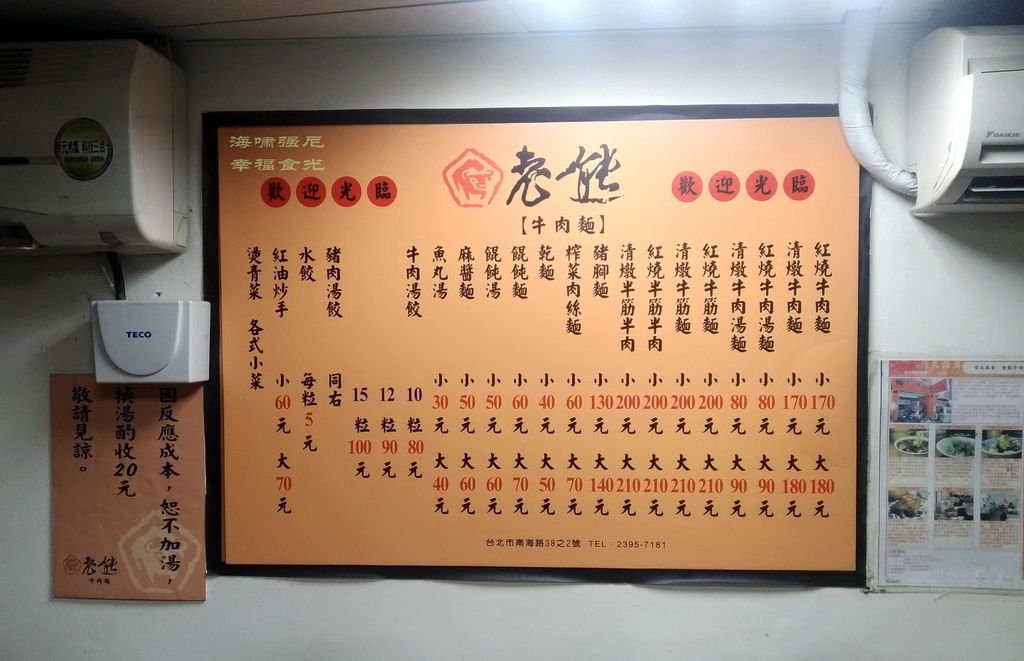 海嘯强尼
幸福食光
歡迎光臨
老熊
【牛肉麵】
歡迎光臨
紅燒牛肉麵 小170元 大180元
清燉牛肉麵 小170元 大180元
紅燒牛肉湯麵 小80元 大90元
清燉牛肉湯麵 小80元 大90元
紅燒牛筋麵 小200元 大210元
清燉牛筋麵 小200元 大210元
紅燒半筋半肉 小200元 大210元
清燉半筋半肉 小200元 大210元
豬腳麵 小130元 大140元
榨菜肉絲麵 小60元 大70元
乾麵 小40元 大50元
餛飩麵 小60元 大70元
餛飩湯 小50元 大60元
麻醬麵 小50元 大60元
魚丸湯 小30元 大40元
牛肉湯餃 10粒80元
12粒90元
15粒100元
豬肉湯餃 同右
水餃 每粒5元
紅油炒手 小60元 大70元
燙青菜 各式小菜
台北市南海路38之2號 TEL:2395-7181
TECO
DAIKIN
因反應成本,恕不加湯,
換湯酌收20元
敬請見諒。
老熊
牛肉麵